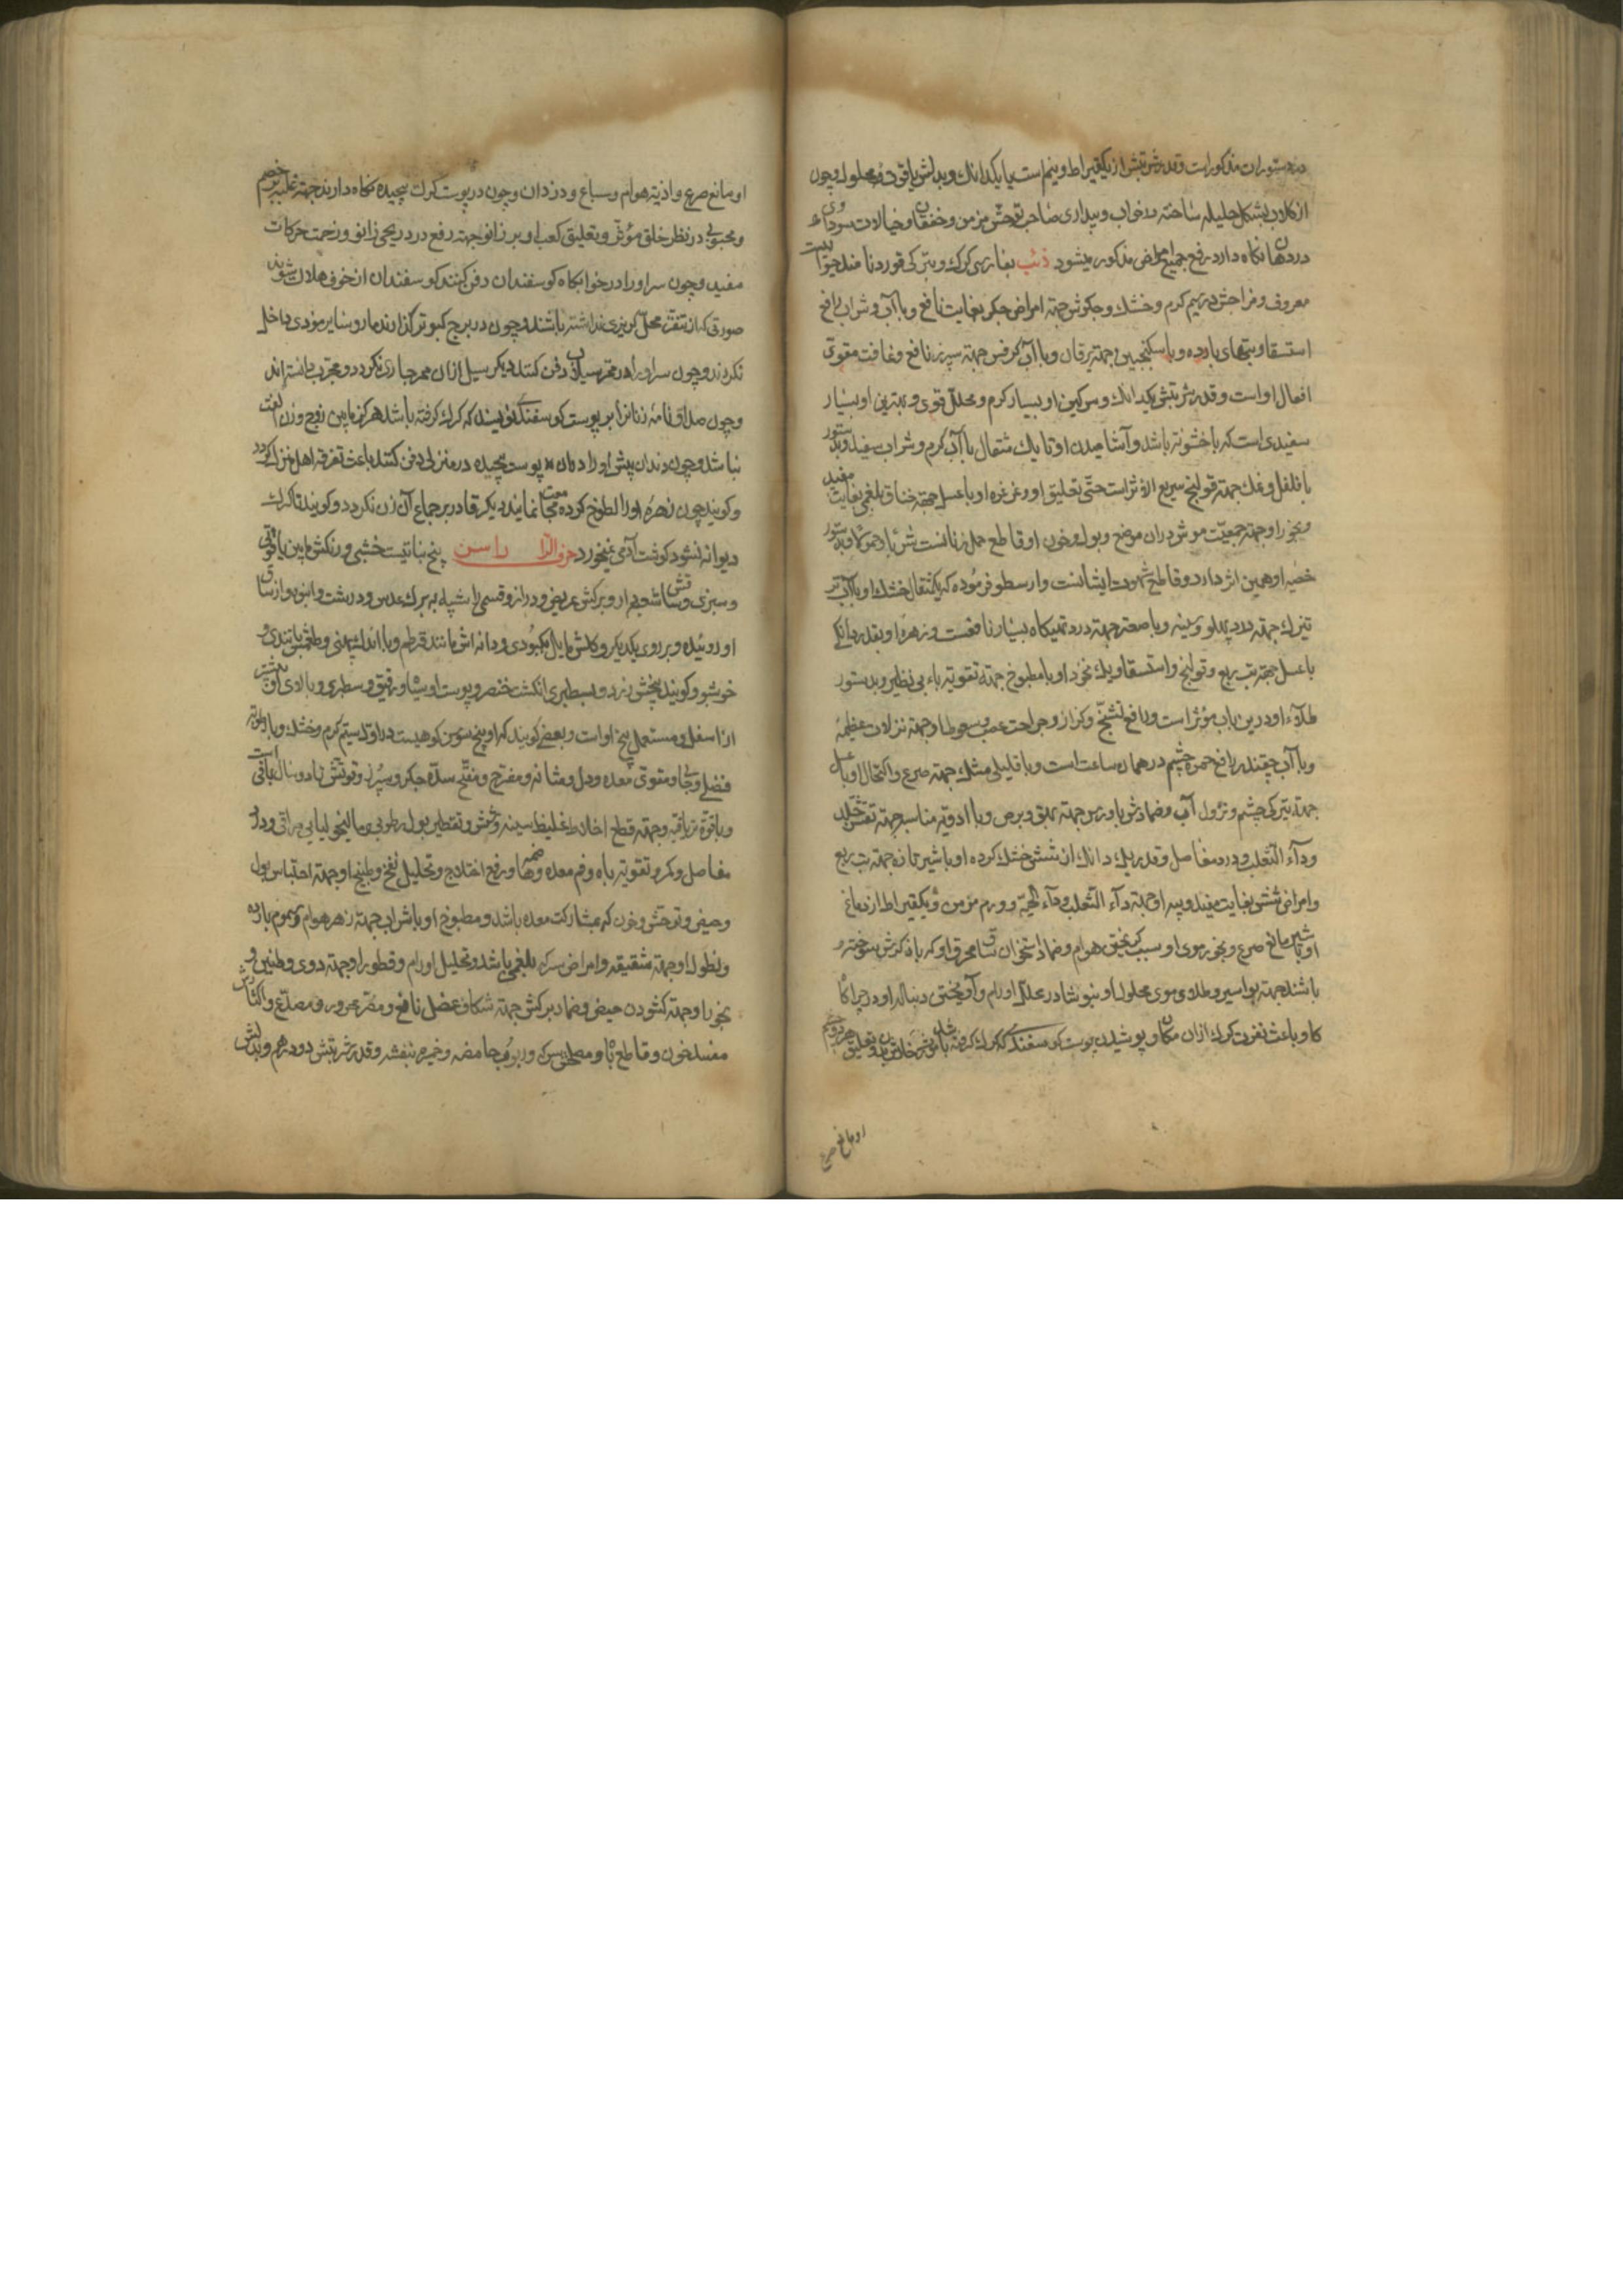 بدستوران مذکور است و قدر شربتش از یکقیراط و نیم است یا یکدانک و بدلش یاقوت محلول و چون
از طلا بشکل جلیله ساخته در خواب و بیداری صاحب توحش مزمن و خفقان و خیالات سوداوی
در دهان نگاه دارد رفع جمیع امراض مذکور میشود ذئب بفارسی کرک و بترکی قورد نامند حیوانیست
معروف و مزاجش در سیم کرم و خشک و جگرش جهة امراض جکر بغایت نافع و با آب و شراب رافع
استسقا و تبهای بارده و با سکنجبین جهة یرقان و با آب کرفس جهة سپرز نافع و غافت مقوی
افعال او است و قدر شربتش یکدانک و سرکین او بسیار کرم و محلل قوی و بهترین او بسیار
سفیدی است که با خشونة باشد و آشامیدن او تا یک مثقال با آب کرم و شراب سفید و بدستور
با فلفل و نمک جهة قولنج سریع الاثر است حتی تعلیق او و غرغره او با عسل جهة خناق بلغمی بغایت مفید
و بخور او جهة جمعیت موش دران موضع و بول و خون او قاطع حمل زنانست شربا و حمولا و بدستور
خصیه او همین اثر دارد و قاطع شهوت ایشانست و ارسطو فرموده که یکمثقال خشک او با آب
تیزک جهة درد پهلو و سینه و با صعتر جهة درد تهیکاه بسیار نافعست و زهره او بقدر دانکی
با عسل جهة تب ربع و قولنج و استسقا و یک نخود او با مطبوخ جهة تقویة باه بی نظیر و بدستور
طلاء او درین باب مؤثر است و رافع تشنج و کزاز و جراحت عصب و سعوطا و جهة نزلات عظیمه
و با آب چقندر رافع حمرة چشم در همان ساعت است و با قلیلی مشک جهة صرع و اکتحال او با عسل
جهة تیرکی چشم و نزول آب و ضمادش با ورس جهة بهق و برص و با ادویه مناسبه جهة تقشر جلد
و داء الثعلب و درد مفاصل و قدر یک دانک از شش خشک کرده او با شیر تازه جهة تب ربع
و امراض شش بغایت مفید و پیه او جهة داء الثعلب و داء الحیه و ورم مزمن و یکقیراط از دماغ
او با شیر مانع صرع و بخور موی او سبب کریختن هوام و ضماد استخوان ساق محرق او که باد کرش سوخته
باشد جهة بواسیر و طلاوی موی محلول او بنوشادر محلل اورام و آویختن دنباله او در چراگاه
کاو باعث نفرت کرک ازان مکان و پوشیدن پوست کوسفندی که کرک کرفته باشد
او مانع صرع
او مانع صرع و اذیة هوام و سباع و دزدان و چون در پوست کرک پیچیده نکاه دارند جهة غلبه بر خصم
و محبوبی در نظر خلق مؤثر و تعلیق کعب او بر زانو جهة رفع درد ریحی زانو و زحمت حرکات
مفید و چون سر او را در خوابکاه کوسفندان دفن کنند کوسفندان از خوف هلاک شوند
صورتی که از تنفر محل کریزی نداشته باشند و چون در برج کبوتر کذارند مار و سایر موذی داخل
نکردند و چون سر او را در ممر سیلاب دفن کنند دیکر سیل ازان ممر جاری نکردد و مجرب دانسته اند
و چون صداق نامه زنانرا بر پوست کوسفندی نویسند که کرک کرفته باشد هرکز مابین زوج و زن الفت
نباشد و چون دندان پیش او را در پوست پیچیده در منزلی دفن کنند باعث تفرقه اهل منزل کردد
و کویند چون زهره او را لطوخ کرده مجامعت نمایند دیکر قادر بر جماع آن زن نکردد و کویند تا کرک
دیوانه نشود کوشت آدمی نمیخورد حرف الرا راسن بیخ نباتیست خشبی و رنکش مابین یاقوتی
و سبزی و ساقش شعبه دار و برکش عریض و دراز و قسمی را شبیه به برک عدس و درشت و انبوه و از ساق
او روئیده و بر روی یکدیکر و کلش مایل بکبودی و دانه اش مانند قرطم و با اندک پهنی و طعمش با تندی و
خوشبو و کویند بیخش زرد و بسطبری انکشت خنصر و پوست او سیاه و رقیق و سطبری و بالای او بیشتر
از اسفل و مستعمل بیخ او است و بعضی کویند که او بیخ سوسن کوهیست در اول سیم کرم و خشک و با رطوبة
فضلی و جالی و مقوی معده و دل و مثانه و مفرح و مفتح سده جکر و سپرز و قوتش تا دو سال باقی است
و با قوة تریاقیه و جهة قطع اخلاط غلیظ سینه و شش و تقطیر بول رطوبی و مالیخولیایی مراقی و درد
مفاصل و کمر و تقویة باه و فم معده و هاضمه و رفع اختلاج و تحلیل نفخ و طبیخ او جهة احتباس بول
و حیض و توحش و خون که بمشارکت معده باشد و مطبوخ او با شراب جهة زهر هوام و سموم بارده
و نطول او جهة شقیقه و امراض سر که بلغمی باشد و تحلیل اورام و قطور او جهة دوی و طنین و
بخور او جهة کشودن حیض و ضماد برکش جهة شکاف عضل نافع و مضر محرور و مصدع و اکثارش
مفسد خون و قاطع باه و مصلحش سرکه و ربوب حامضه و خمیره بنفشه و قدر شربتش دو درهم و بدلش